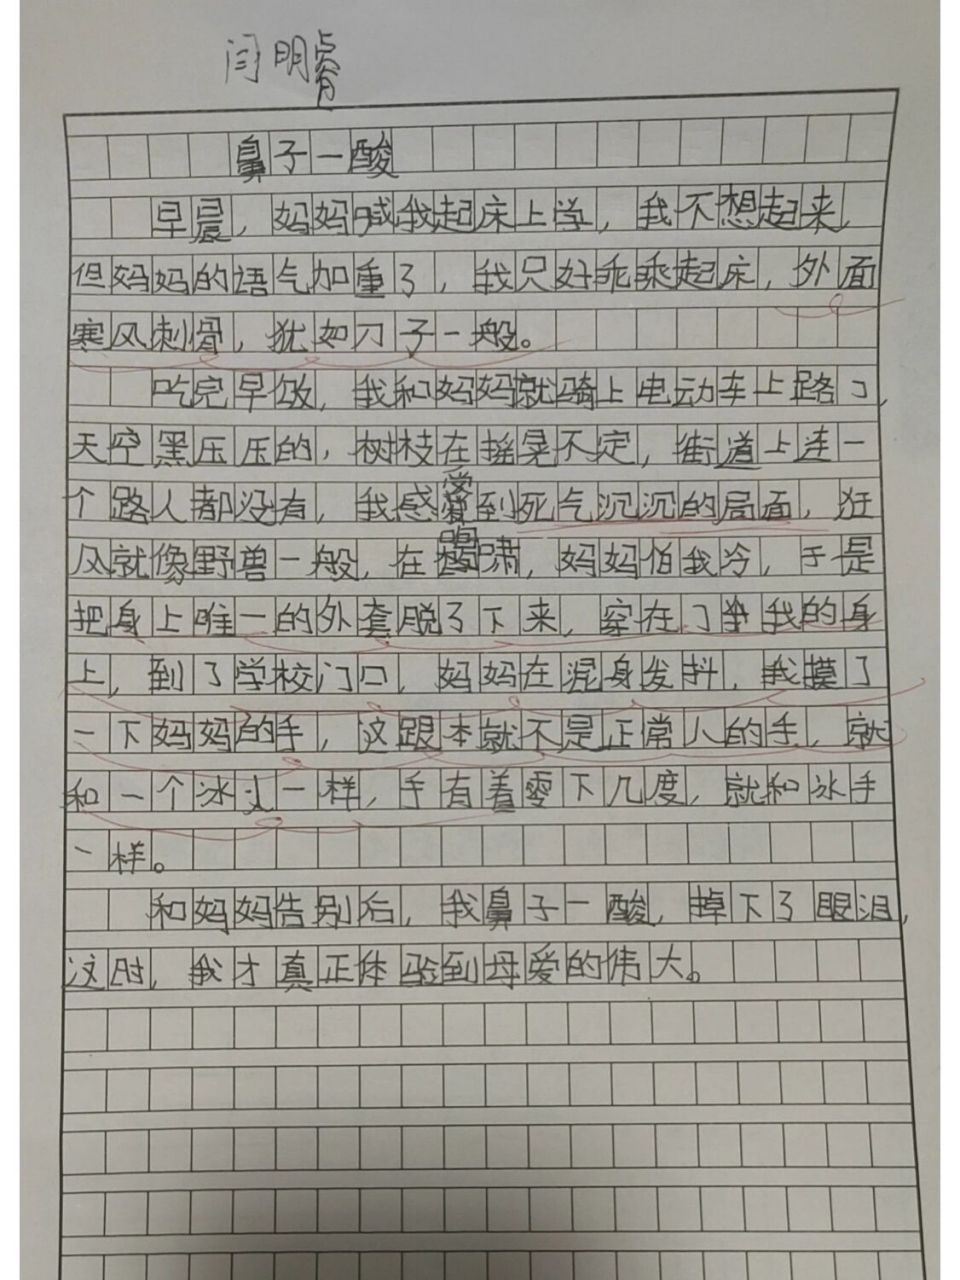 闫明睿
鼻子一酸
早晨，妈妈喊我起床上学，我不想起来，
但妈妈的语气加重了，我只好乖乖起床，外面
寒风刺骨，犹如刀子一般。
吃完早饭，我和妈妈就骑上电动车上路了，
天空黑压压的，树枝在摇晃不定，街道上连一
个路人都没有，我感受到死气沉沉的局面，狂
风就像野兽一般，在鸣啸，妈妈怕我冷，于是
把身上唯一的外套脱了下来，穿在了我的身
上，到了学校门口，妈妈在混身发抖，我摸了
一下妈妈的手，这跟本就不是正常人的手，就
和一个冰一样，手有着零下几度，就和冰手
一样。
和妈妈告别后，我鼻子一酸，掉下了眼泪，
这时，我才真正体验到母爱的伟大。